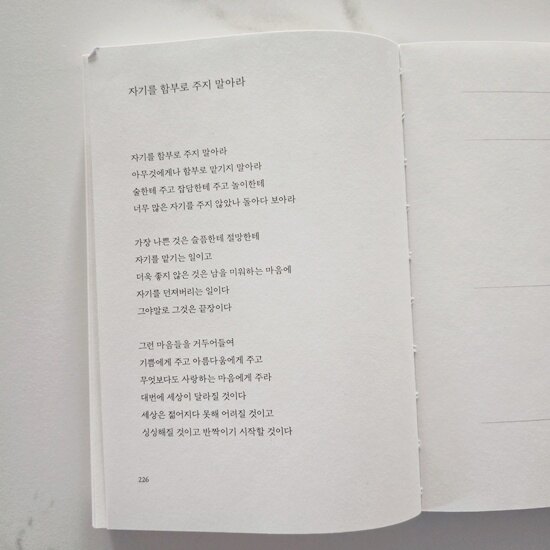 자기를 함부로 주지 말아라
자기를 함부로 주지 말아라
아무것에게나 함부로 맡기지 말아라
술한테 주고 잡담한테 주고 놀이한테
너무 많은 자기를 주지 않았나 돌아다 보아라
가장 나쁜 것은 슬픔한테 절망한테
자기를 맡기는 일이고
더욱 좋지 않은 것은 남을 미워하는 마음에
자기를 던져버리는 일이다
그야말로 그것은 끝장이다
그런 마음들을 거두어들여
기쁨에게 주고 아름다움에게 주고
무엇보다도 사랑하는 마음에게 주라
대번에 세상이 달라질 것이다
세상은 젊어지다 못해 어려질 것이고
싱싱해질 것이고 반짝이기 시작할 것이다
226